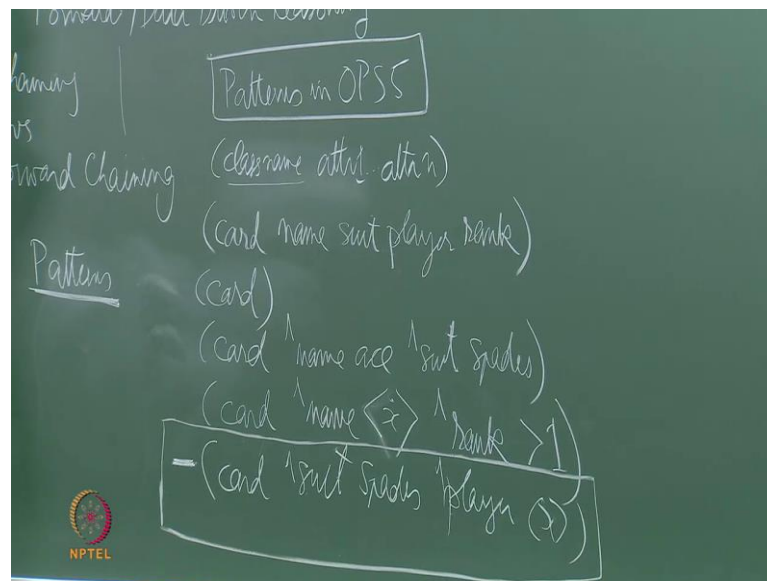 Forward/Data Driven Reasoning
haining
vs
rward Chaining
Patterns
Patterns in OPS5
(classname attr1.. attr n)
(card name suit player rank)
(card)
(card ^name ace ^suit spades)
(card ^name <x> ^rank >1)
-(card ^suit spades ^player (S))
NPTEL